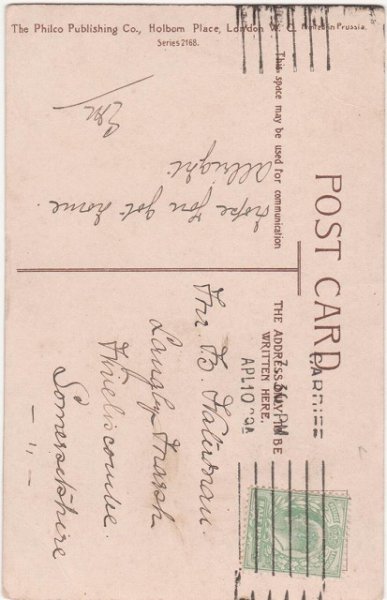 The Philco Publishing Co., Holborn Place, London W. C. Printed in Prussia.
Series 2168.
POST CARD
This space may be used for communication
THE ADDRESS ONLY TO BE
WRITTEN HERE.
hope you got home
allright
CARDIFF
7 30 PM
AP 10 09
Langley Marsh
Wiveliscombe
Somersetshire